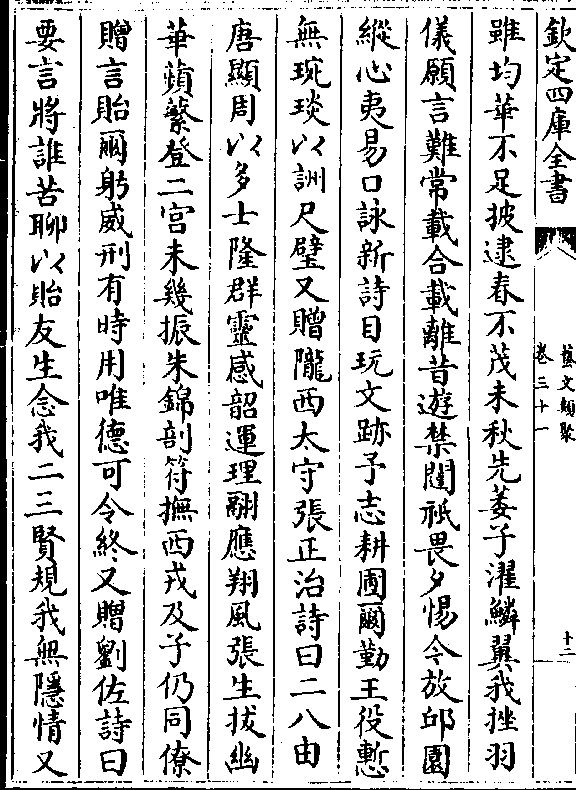 欽定四庫全書
藝文類聚
卷三十一
十二
雖均華不足披逮春不茂未秋先萎子濯鱗翼我挫羽
儀願言難常載合載離昔遊禁闥祗畏夕惕今放邱園
縱心夷易口詠新詩目玩文跡予志耕圃爾勤王役慙
無琬琰以詶尺璧又贈隴西太守張正治詩曰二八由
唐顯周以多士隆群靈感韶運理翮應翔風張生拔幽
華蘋蘩登二宮未幾振朱錦剖符撫西戎及子仍同僚
贈言貽爾躬威刑有時用唯德可令終又贈劉佐詩曰
要言將誰苦聊以貽友生念我二三賢規我無隱情又